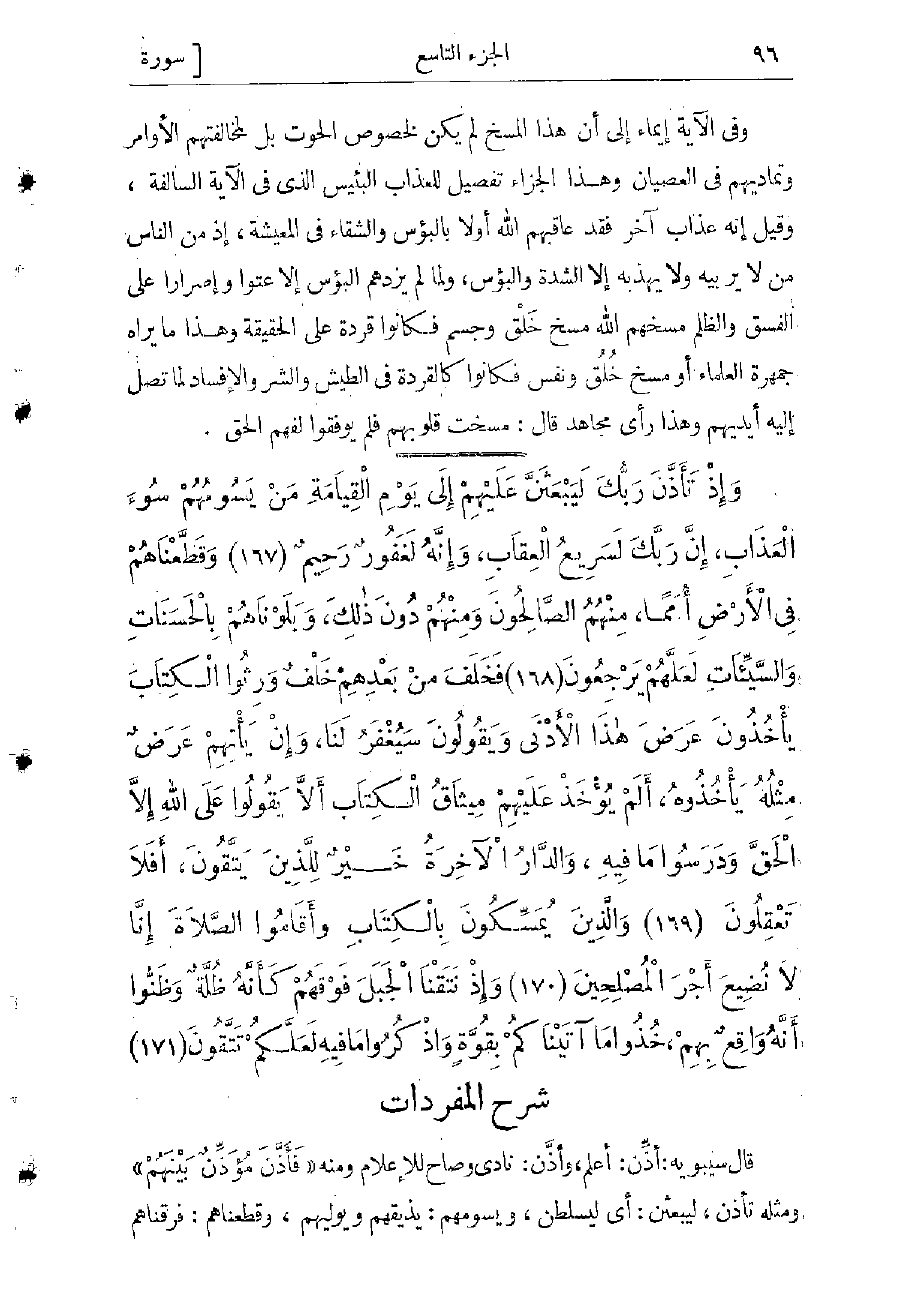 ٩٦ الجزء التاسع [ سورة
وفى الآية إيماء إلى أن هذا المسخ لم يكن لخصوص الحوت بل لمخالفتهم الأوامر
وتماديهم فى العصيان وهذا الجزاء تفصيل للعذاب البئيس الذى فى الآية السالفة ،
وقيل إنه عذاب آخر فقد عاقبهم الله أولا بالبؤس والشقاء فى المعيشة ، إذ من الناس
من لا يربيه ولا يهذبه إلا الشدة والبؤس، ولما لم يزدهم البؤس إلا عتوا وإصرارا على
الفسق والظلم مسخهم الله مسخ خَلْق وجسم فكانوا قردة على الحقيقة وهذا ما يراه
جمهرة العلماء أو مسخ خُلُق ونفس فكانوا كالقردة فى الطيش والشر والإفساد لما تصل
إليه أيديهم وهذا رأى مجاهد قال : مسخت قلوبهم فلم يوفقوا لفهم الحق .
وَإِذْ تَأَذَّنَ رَبُّكَ لَيَبْعَثَنَّ عَلَيْهِمْ إِلَى يَوْمِ الْقِيَامَةِ مَنْ يَسُومُهُمْ سُوءَ
الْعَذَابِ، إِنَّ رَبَّكَ لَسَرِيعُ الْعِقَابِ، وَإِنَّهُ لَغَفُورٌ رَحِيمٌ (١٦٧) وَقَطَّعْنَاهُمْ
فِى الْأَرْضِ أُمَمًا، مِنْهُمُ الصَّالِحُونَ وَمِنْهُمْ دُونَ ذَلِكَ، وَبَلَوْنَاهُمْ بِالْحَسَنَاتِ
وَالسَّيِّئَاتِ لَعَلَّهُمْ يَرْجِعُونَ (١٦٨) فَخَلَفَ مِنْ بَعْدِهِمْ خَلْفٌ وَرِثُوا الْكِتَابَ
يأْخُذُونَ عَرَضَ هٰذَا الْأَدْنَى وَيَقُولُونَ سَيُغْفَرُ لَنَا، وَإِنْ يَأْتِهِمْ عَرَضٌ
مِثْلُهُ يَأْخُذُوهُ، أَلَمْ يُؤْخَذْ عَلَيْهِمْ مِيثَاقُ الْكِتَابِ أَلاَّ يَقُولُوا عَلَى اللهِ إِلاَّ
الْحَقَّ وَدَرَسُوا مَا فِيهِ ، وَالدَّارُ الْآخِرَةُ خَيْرٌ لِلَّذِينَ يَتَّقُونَ، أَفَلاَ
تَعْقِلُونَ (١٦٩) وَالَّذِينَ يُمَسِّكُونَ بِالْكِتَابِ وأَقَامُوا الصَّلاَةَ إِنَّا
لاَ نُضِيعُ أَجْرَ الْمُصْلِحِينَ (١٧٠) وَإِذْ نَتَقْنَا الْجَبَلَ فَوْقَهُمْ كَأَنَّهُ ظُلَّةٌ وَظَنُّوا
أَنَّهُ وَاقِعٌ بِهِمْ، خُذُوا مَا آتَيْنَاكُمْ بِقُوَّةٍ وَاذْكُرُوا مَا فِيهِ لَعَلَّكُمْ تَتَّقُونَ (١٧١)
شرح المفردات
قال سيبويه: أذّن: أعلم، وأذَّن: نادى وصاح للإعلام ومنه « فَأَذَّنَ مُؤَذِّنٌ بَيْنَهُمْ »
ومثله تأذن ، ليبعثن : أى ليسلطن ، ويسومهم : يذيقهم ويوليهم ، وقطعناهم : فرقناهم